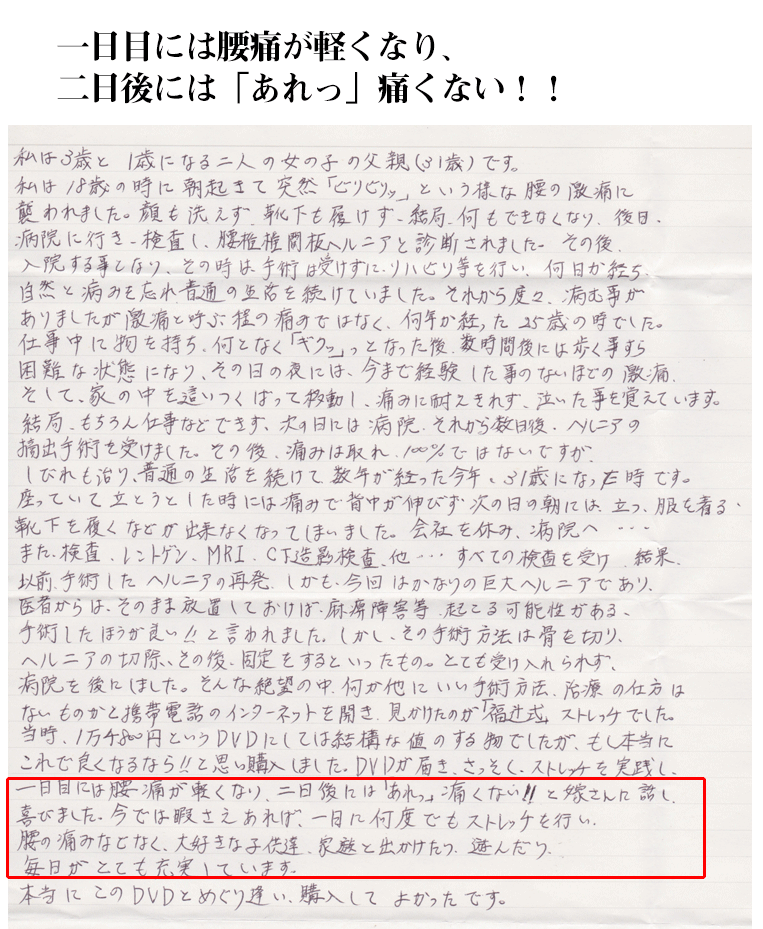 一日目には腰痛が軽くなり、
二日後には「あれっ」痛くない！！
私は3歳と1歳になる二人の女の子の父親(31歳)です。
私は18歳の時に朝起きて突然「ビリビリッ」という様な腰の激痛に
襲われました。顔も洗えず、靴下も履けず、結局、何もできなくなり、後日、
病院に行き、検査し、腰椎椎間板ヘルニアと診断されました。その後、
入院する事となり、その時は手術は受けずに、リハビリ等を行い、何日か経ち、
自然と痛みを忘れ、普通の生活を続けていました。それから度々、痛む事が
ありましたが激痛と呼ぶ程の痛みではなく、何年か経った25歳の時でした。
仕事中に物を持ち、何となく「ギクッ」っとなった後、数時間後には歩く事すら
困難な状態になり、その日の夜には、今まで経験した事のないほどの激痛、
そして、家の中を這いつくばって移動し、痛みに耐えきれず、泣いた事を覚えています。
結局、もちろん仕事などできず、次の日には病院、それから数日後、ヘルニアの
摘出手術を受けました。その後、痛みは取れ、100%ではないですが、
しびれも治り、普通の生活を続けて数年が経った今年、31歳になった時です。
座っていて立とうとした時には痛みで背中が伸びず次の日の朝には、立つ、服を着る、
靴下を履くなどが出来なくなってしまいました。会社を休み、病院へ…
また、検査、レントゲン、MRI、CT造影検査、他…すべての検査を受け、結果、
以前、手術したヘルニアの再発、しかも、今回はかなりの巨大ヘルニアであり、
医者からは、そのまま放置しておけば、麻痺障害等、起こる可能性がある、
手術したほうが良い!!と言われました。しかし、その手術方法は骨を切り、
ヘルニアの切除、その後、固定をするといったもの。とても受け入れられず、
病院を後にしました。そんな絶望の中、何か他にいい手術方法、治療の仕方は
ないものかと携帯電話のインターネットを開き、見かけたのが「福辻式」ストレッチでした。
当時、1万4800円というDVDにしては結構な値のする物でしたが、もし本当に
これで良くなるなら!!と思い購入しました。DVDが届き、さっそく、ストレッチを実践し、
一日目には腰痛が軽くなり、二日後には「あれっ」痛くない!!と嫁さんに話し、
喜びました。今では暇さえあれば、一日に何度でもストレッチを行い、
腰の痛みなどなく、大好きな子供達、家庭と出かけたり、遊んだり、
毎日がとても充実しています。
本当にこのDVDとめぐり逢い、購入してよかったです。